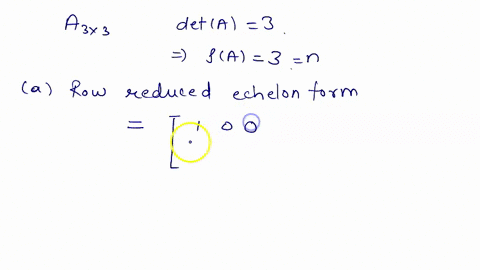 A₃ₓ₃ det(A) = 3.
⇒ ρ(A) = 3 = n
(a) Row reduced echelon form
= [ 1 0 0